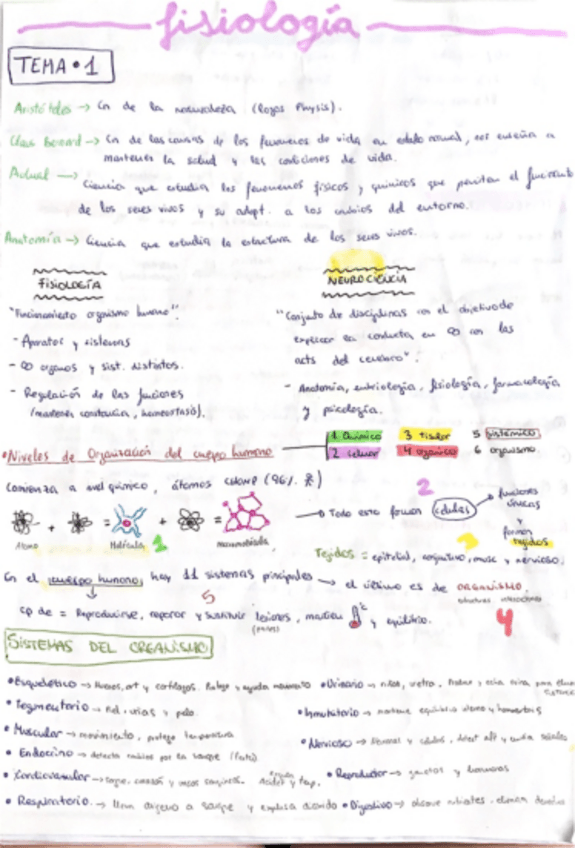 fisiología
TEMA • 1
Aristóteles → Cn de la naturaleza (logos Physis).
→ Cn de las causas de los fenomenos de vida en estado normal, nos enseña a
mantener la salud y las condiciones de vida.
Actual → Ciencia que estudia los fenomenos físicos y químicos que permiten el
de los seres vivos y su adapt. a los cambios del entorno.
Anatomía → Ciencia que estudia la estructura de los seres vivos.
FISIOLOGÍA
"Funcionamiento organismo humano".
- Aparatos y sistemas
- ∞ organos y sist. distintos.
- Regulación de las funciones
(mantener constancia, homeostasis).
NEUROCIENCIA
"Conjunto de disciplinas con el objetivo de
explicar la conducta en ∞ con las
acts del cerebro".
- Anatomía, embriología, fisiología, farmacología
y psicología.
• Niveles de Organización del cuerpo humano
1 Químico 3 tisular 5 sistémico
2 celular 4 orgánico 6 organismo
Comienza a nivel químico, átomos CHONP (96%
Átomo + = Molécula 1 + = macromolécula
→ Todo esto forman células 2
→ funciones
y
forman
tejidos
3
Tejidos = epitelial, conjuntivo, musc y nervioso.
En el cuerpo humano hay 11 sistemas principales → el último es de ORGANISMO.
5
4
cp de = Reproducirse, reparar y sustituir lesiones, mantien ºC y equilibrio.
SISTEMAS DEL ORGANISMO
• Esquelético → Huesos, art y cartílagos. Protege y ayuda movimiento
• Tegmentario → Piel, uñas y pelo.
• Muscular → movimiento, protege temperatura
• Endocrino → detecta cambios por la sangre
• Cardiovascular → sangre, corazón y vasos sanguíneos. Acidez y temp.
• Respiratorio. → lleva oxígeno a sangre y expulsa dioxido
• Urinario → riñón, uretra.
• Inmunitario → mantiene equilibrio
• Nervioso →
• Reproductor → gametos y hormonas
• Digestivo → absorve nutrientes, elimina desechos